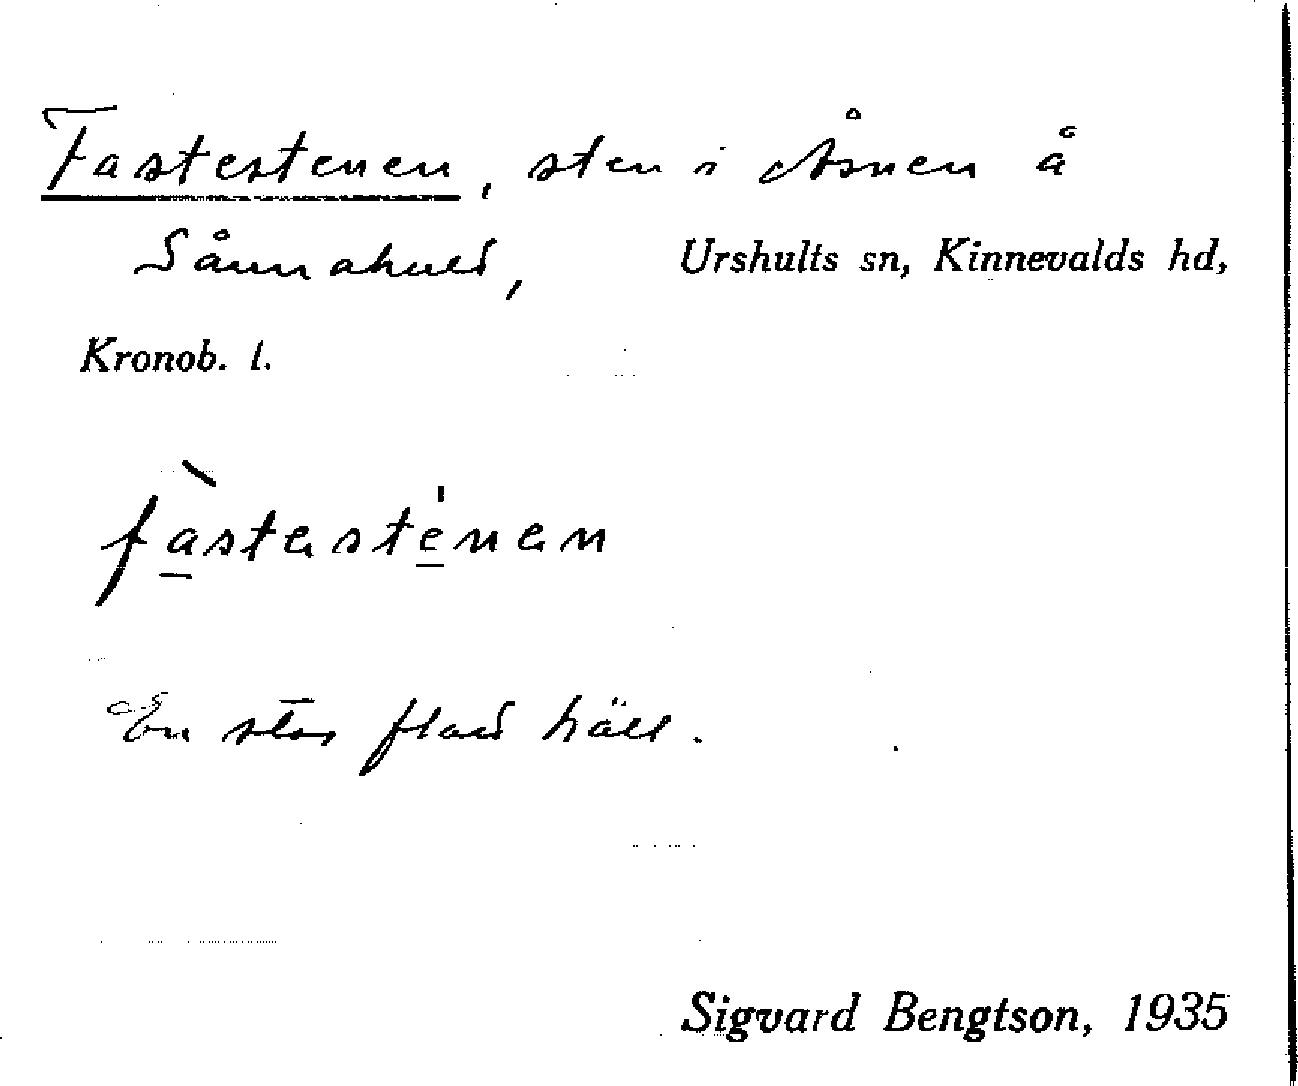 Fastestenen, sten i Åsnen å
Sånnahult, Urshults sn, Kinnevalds hd,
Kronob. l.
fàstasténan
En stor flad häll.
Sigvard Bengtson, 1935